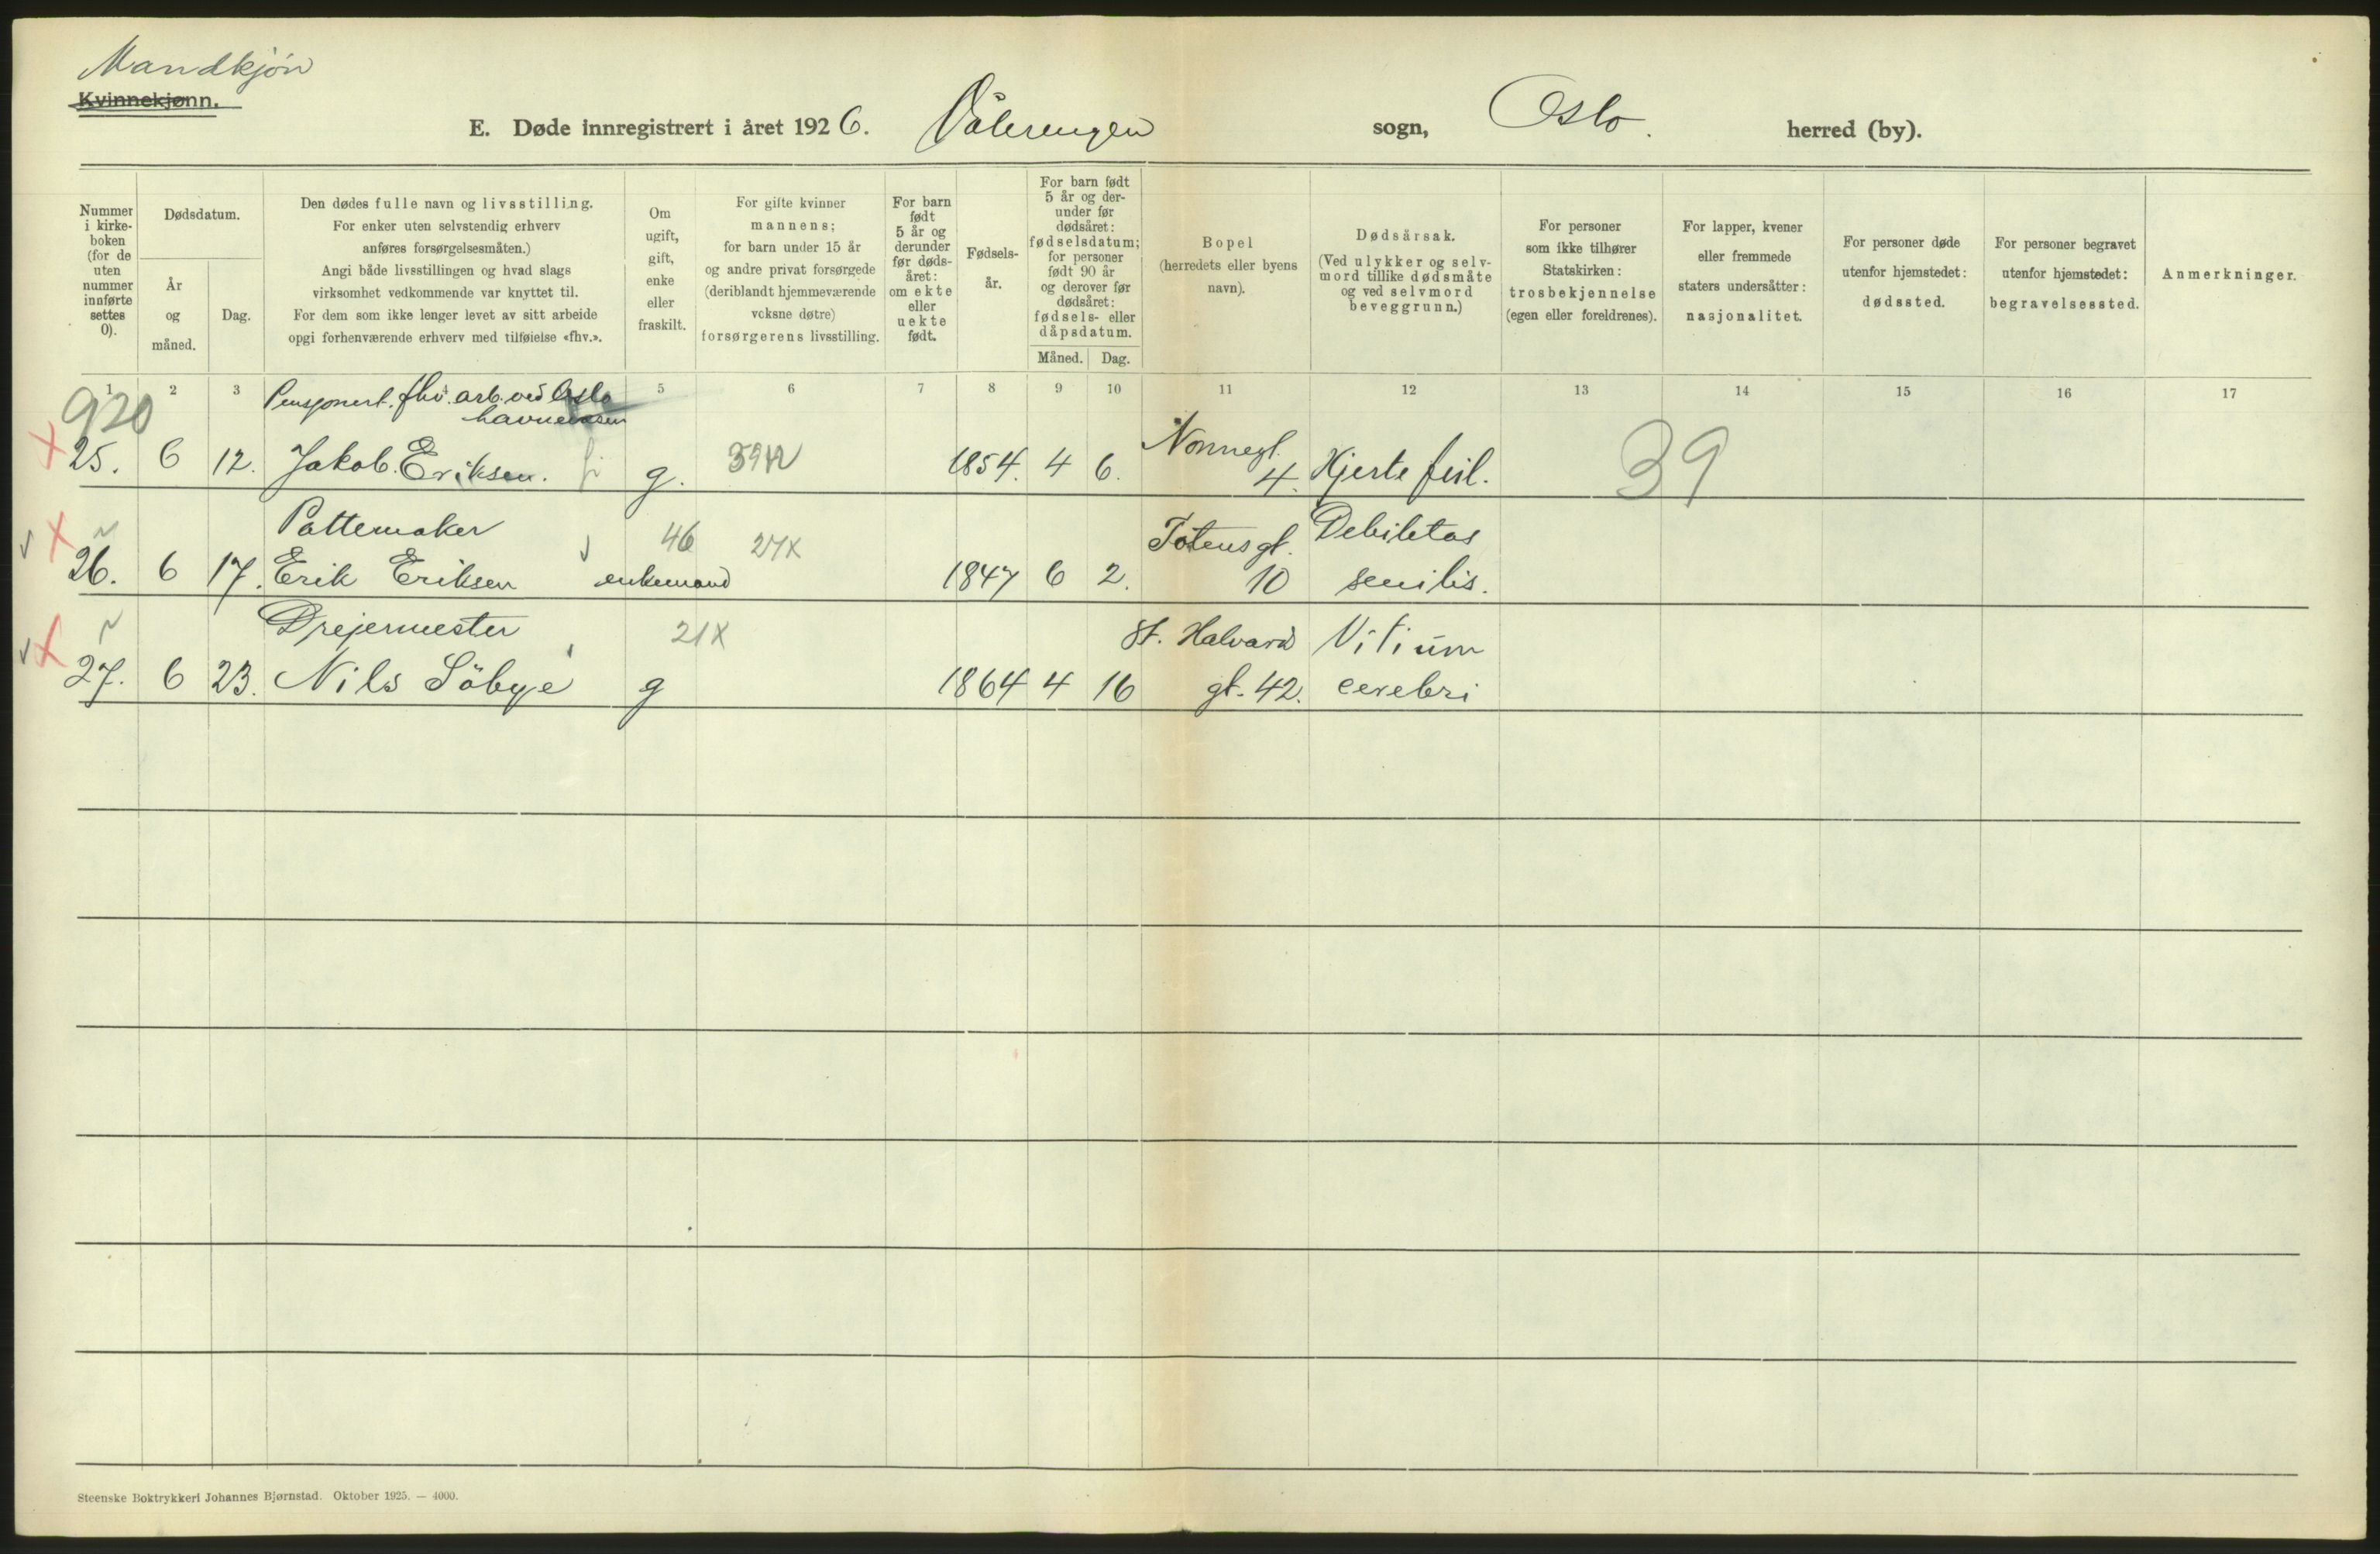 Mandkjön
Kvinnekjønn.
E. Døde innregistrert i året 1926. Vålerengen sogn, Oslo. herred (by).
Nummer i kirke-boken (for de uten nummer innførte settes 0).
Dødsdatum.
År og måned.
Dag.
Den dødes fulle navn og livsstilling.
For enker uten selvstendig erhverv
anføres forsørgelsesmåten.)
Angi både livsstillingen og hvad slags
virksomhet vedkommende var knyttet til.
For dem som ikke lenger levet av sitt arbeide
opgi forhenværende erhverv med tilføielse «fhv.».
Om ugift, gift, enke eller fraskilt.
For gifte kvinner
mannens;
for barn under 15 år
og andre privat forsørgede
(deriblandt hjemmeværende
voksne døtre)
forsørgerens livsstilling.
For barn født 5 år og derunder før døds-året: om ekte eller uekte født.
Fødsels-år.
For barn født 5 år og der-under før dødsåret: fødselsdatum; for personer født 90 år og derover før dødsåret: fødsels- eller dåpsdatum.
Måned. Dag.
Bopel
(herredets eller byens
navn).
Dødsårsak.
(Ved ulykker og selv-
mord tillike dødsmåte
og ved selvmord
beveggrunn.)
For personer
som ikke tilhører
Statskirken:
trosbekjennelse
(egen eller foreldrenes).
For lapper, kvener
eller fremmede
staters undersåtter:
nasjonalitet.
For personer døde
utenfor hjemstedet:
dødssted.
For personer begravet
utenfor hjemstedet:
begravelsessted.
Anmerkninger.
1 2 3 5 6 7 8 9 10 11 12 13 14 15 16 17
920
Pensjonert. fhv. arb. ved Oslo
havnevesen
25. 6 12. Jakob. Eriksen. g. 1854. 4 6. Nonnegt. 4. Hjerte feil. 39
Pottemaker 46 27X Totensgt. Debilitas
26. 6 17. Erik Eriksen enkemand 1847 6 2. 10 senilis.
Drejermester 21X St. Halvards Vitium
27. 6 23. Nils Söbye g 1864 4 16 gt. 42. cerebri
Steenske Boktrykkeri Johannes Bjørnstad. Oktober 1925. — 4000.